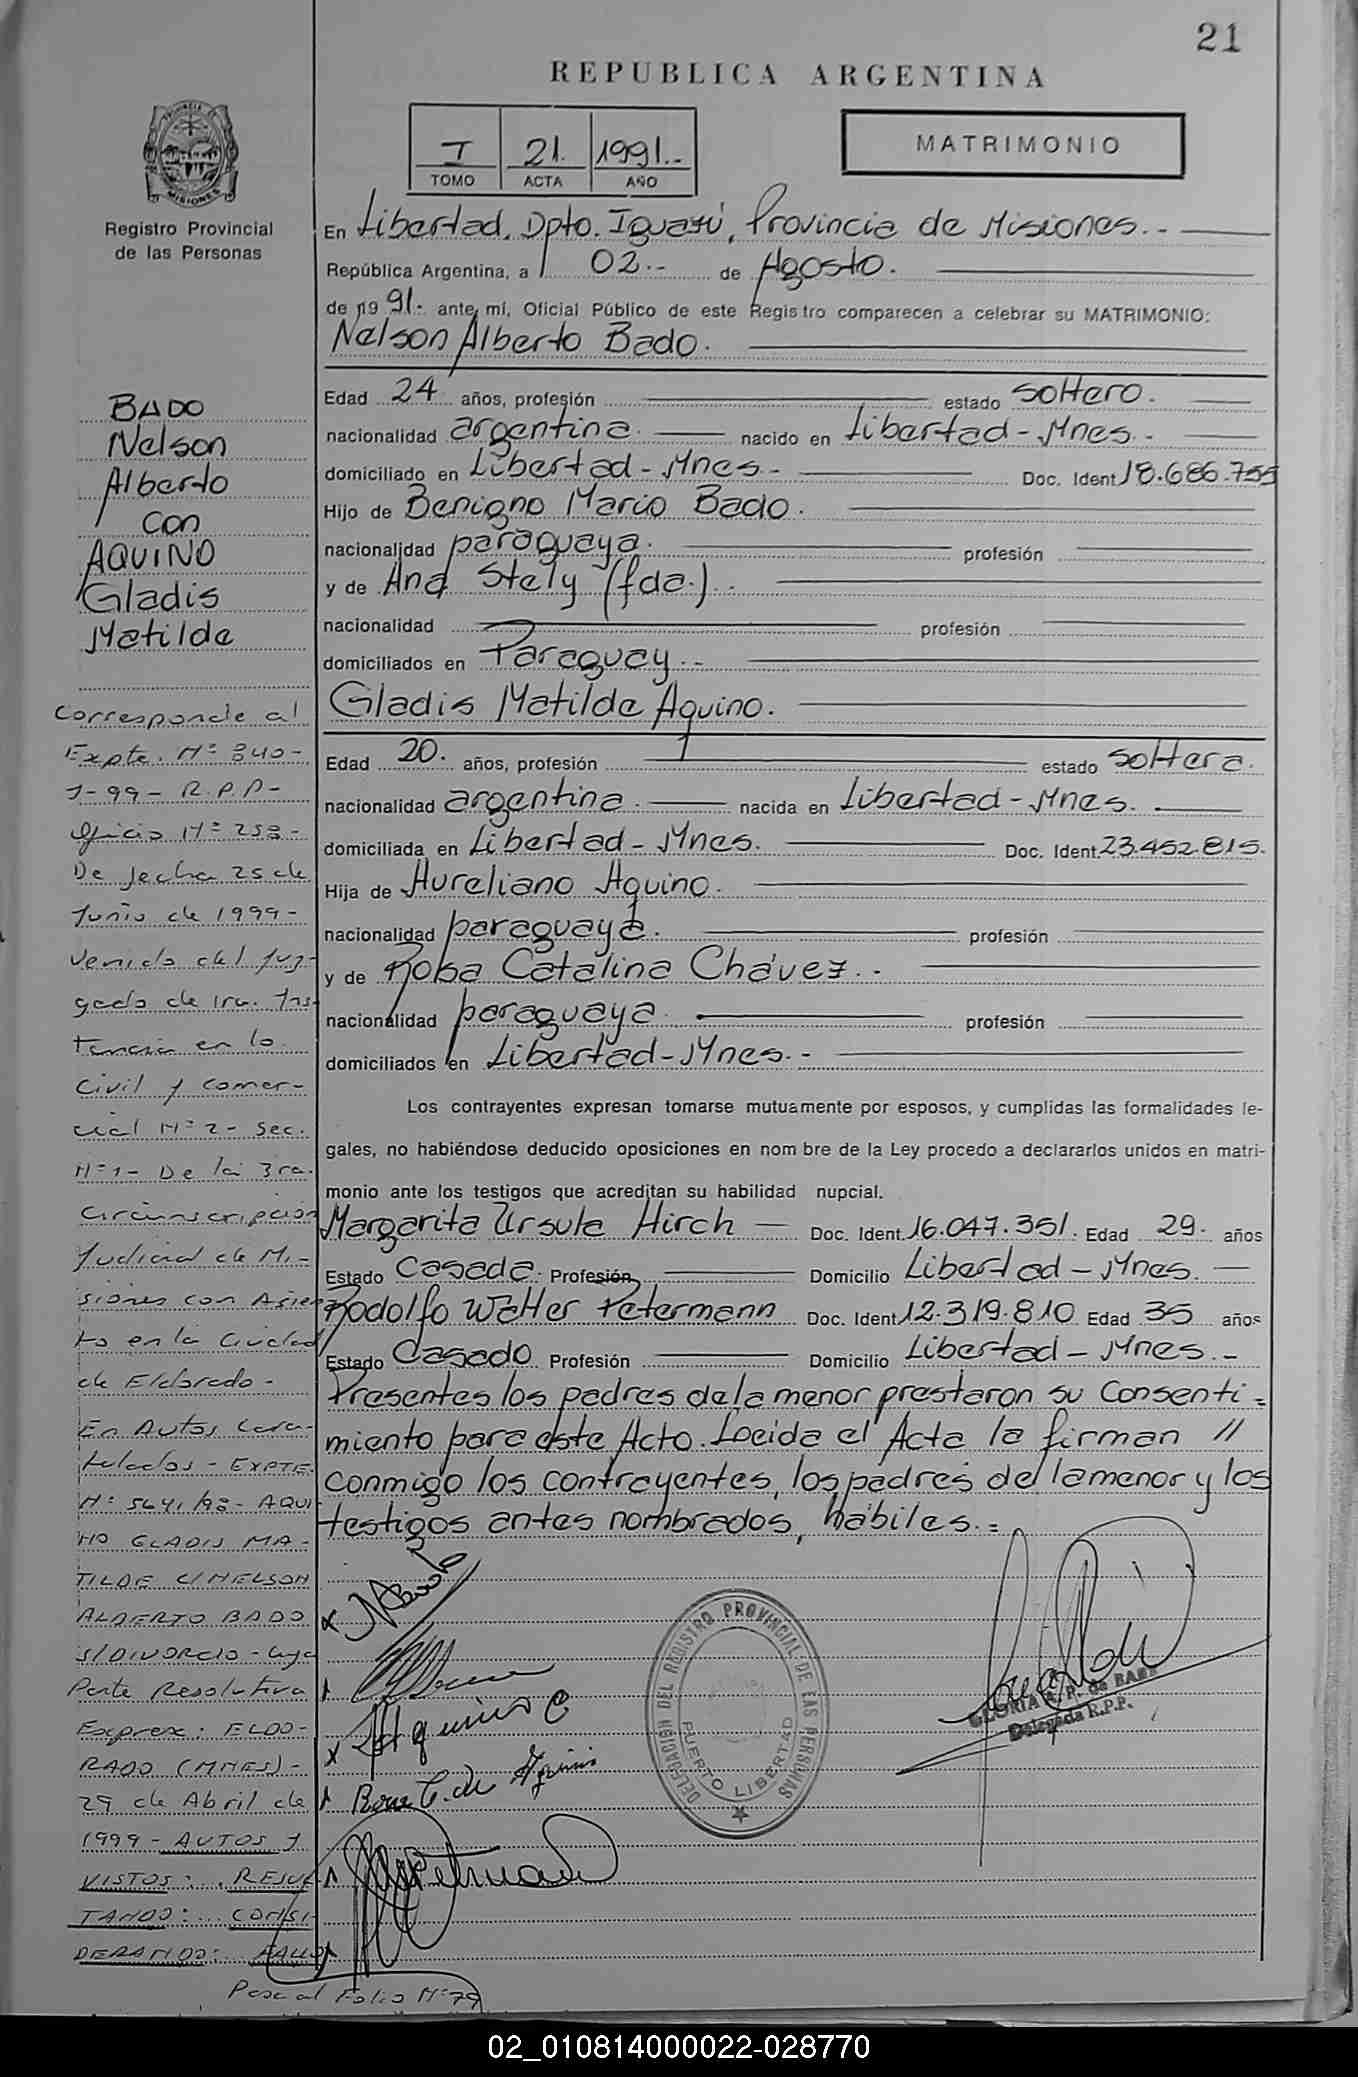 21
REPUBLICA ARGENTINA
I 21. 1991.-
TOMO ACTA AÑO
MATRIMONIO
PROVINCIA
MISIONES
Registro Provincial
de las Personas
En Libertad, Dpto. Iguazú, Provincia de Misiones.-
República Argentina, a 02.- de Agosto.
de 1991.- ante mí, Oficial Público de este Registro comparecen a celebrar su MATRIMONIO:
Nelson Alberto Bado.
Edad 24 años, profesión estado soltero.
nacionalidad argentina. nacido en Libertad-Mnes.-
domiciliado en Libertad-Mnes.- Doc. Ident. 18.686.755
Hijo de Benigno Mario Bado.
nacionalidad paraguaya. profesión
y de Ana Stely (fda.).-
nacionalidad profesión
domiciliados en Paraguay.-
Gladis Matilde Aquino.
Edad 20. años, profesión estado soltera.
nacionalidad argentina. nacida en Libertad-Mnes.
domiciliada en Libertad-Mnes. Doc. Ident. 23.452.815.
Hija de Aureliano Aquino.
nacionalidad paraguaya. profesión
y de Rosa Catalina Chávez.-
nacionalidad paraguaya. profesión
domiciliados en Libertad-Mnes.-
Los contrayentes expresan tomarse mutuamente por esposos, y cumplidas las formalidades le-
gales, no habiéndose deducido oposiciones en nombre de la Ley procedo a declararlos unidos en matri-
monio ante los testigos que acreditan su habilidad nupcial.
Margarita Ursula Hirch Doc. Ident. 16.047.351. Edad 29. años
Estado Casada. Profesión Domicilio Libertad-Mnes.
Rodolfo Walter Petermann Doc. Ident. 12.319.810 Edad 35 años
Estado Casado Profesión Domicilio Libertad-Mnes.-
Presentes los padres de la menor prestaron su Consenti=
miento para este Acto. Leeida el Acta la firman //
conmigo los contrayentes, los padres de la menor y los
testigos antes nombrados, hábiles.=
BADO
Nelson
Alberto
con
AQUINO
Gladis
Matilde
Corresponde al
Expte. Nº 340-
J-99- R.P.P-
Oficio Nº 258-
De fecha 25 de
Junio de 1999-
venido del Juz-
gado de 1ra. Ins
tancia en lo
Civil y Comer-
cial Nº 2- Sec.
Nº 1- De la 3ra.
Circunscripción
Judicial de Mi-
siones con Asien
to en la Ciudad
de Eldorado-
En Autos Cara-
tulados- EXPTE.
Nº 5641/98- AQUI
NO GLADIS MA-
TILDE C/NELSON
ALBERTO BADO
S/DIVORCIO- Cuya
Parte Resolutiva
Expresa: ELDO-
RADO (MNES)-
29 de Abril de
1999- AUTOS Y
VISTOS:.. RESUL
TANDO:... CONSI-
DERANDO:.. FALLO
Pasa al Folio Nº 79
Aquino
Rosa C. de Aquino
DELEGACION DEL REGISTRO PROVINCIAL DE LAS PERSONAS
PUERTO LIBERTAD
GLORIA A. P. de BAEZ
Delegada R.P.P.
02_010814000022-028770